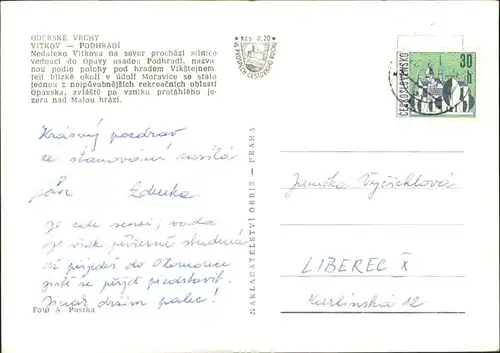 ODERSKÉ VRCHY
VÍTKOV — PODHRADÍ
Nedaleko Vítkova na sever prochází silnice
vedoucí do Opavy osadou Podhradí, nazva
nou podle polohy pod hradem Vikštejnem
Její blízké okolí v údolí Moravice se stalo
jednou z nejpůvabnějších rekreační oblastí
Opavska, zvláště po vzniku protáhlého je-
zera nad Malou hrází.
Kčs 0,20
ČESKOSLOVENSKO
30 h
Krásný pozdrav
ze stanování zasílá
Zdenka
Je zde senzi, voda
je však příšerně studená
až přijedeš do Olomouce
přijít představit.
Jinak držím palec!
Foto A. Pustka
NAKLADATELSTVÍ ORBIS — PRAHA
Janička Vyčichlová
LIBEREC X
Karlinská 12